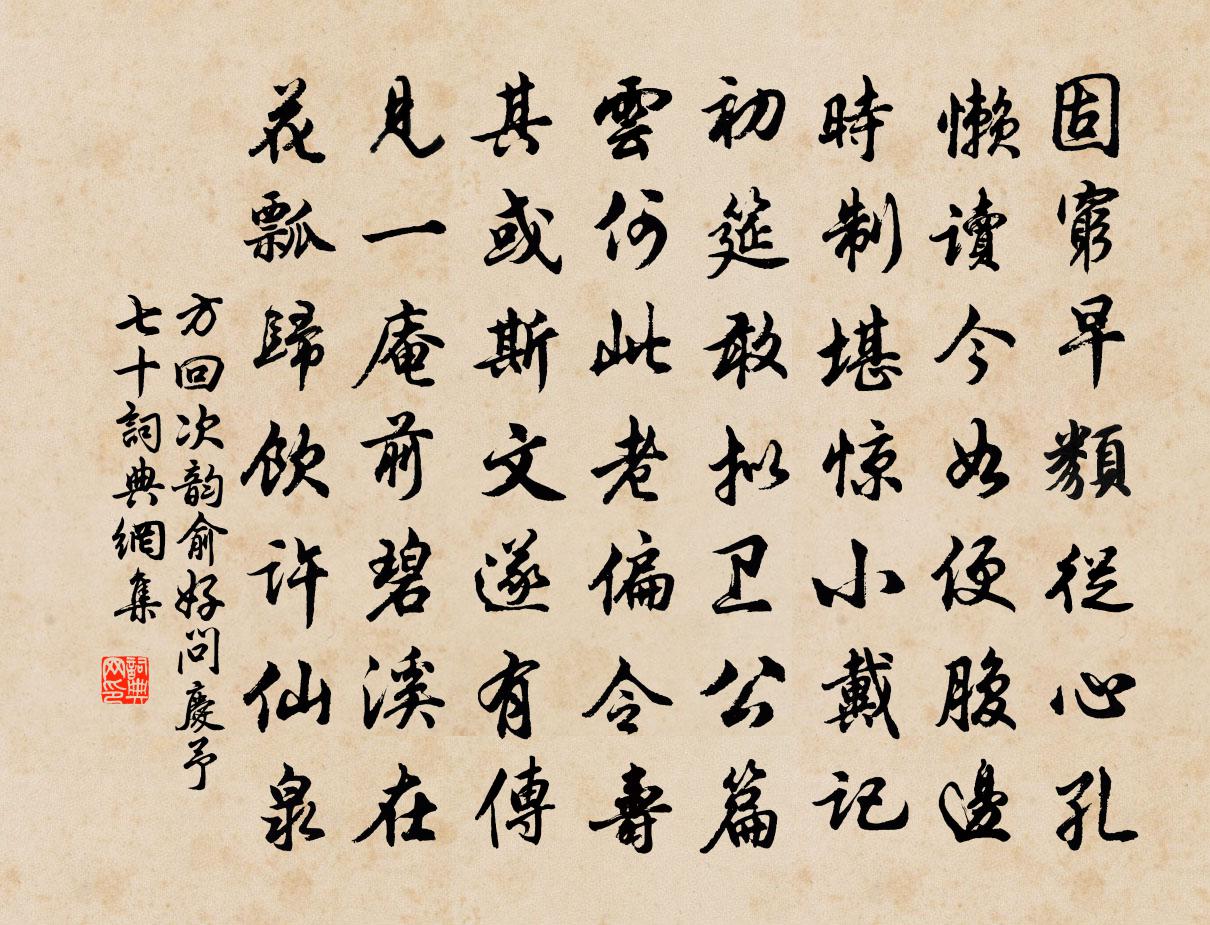 固窮早類從心孔
懶讀今如便腹邊
時制堪惊小戴記
初筵敢拟卫公篇
雲何此老偏令壽
其或斯文遂有傳
見一庵前碧溪在
花瓢歸飲許仙泉
方回次韵俞好問慶予
七十詞典網集
詞典
网印